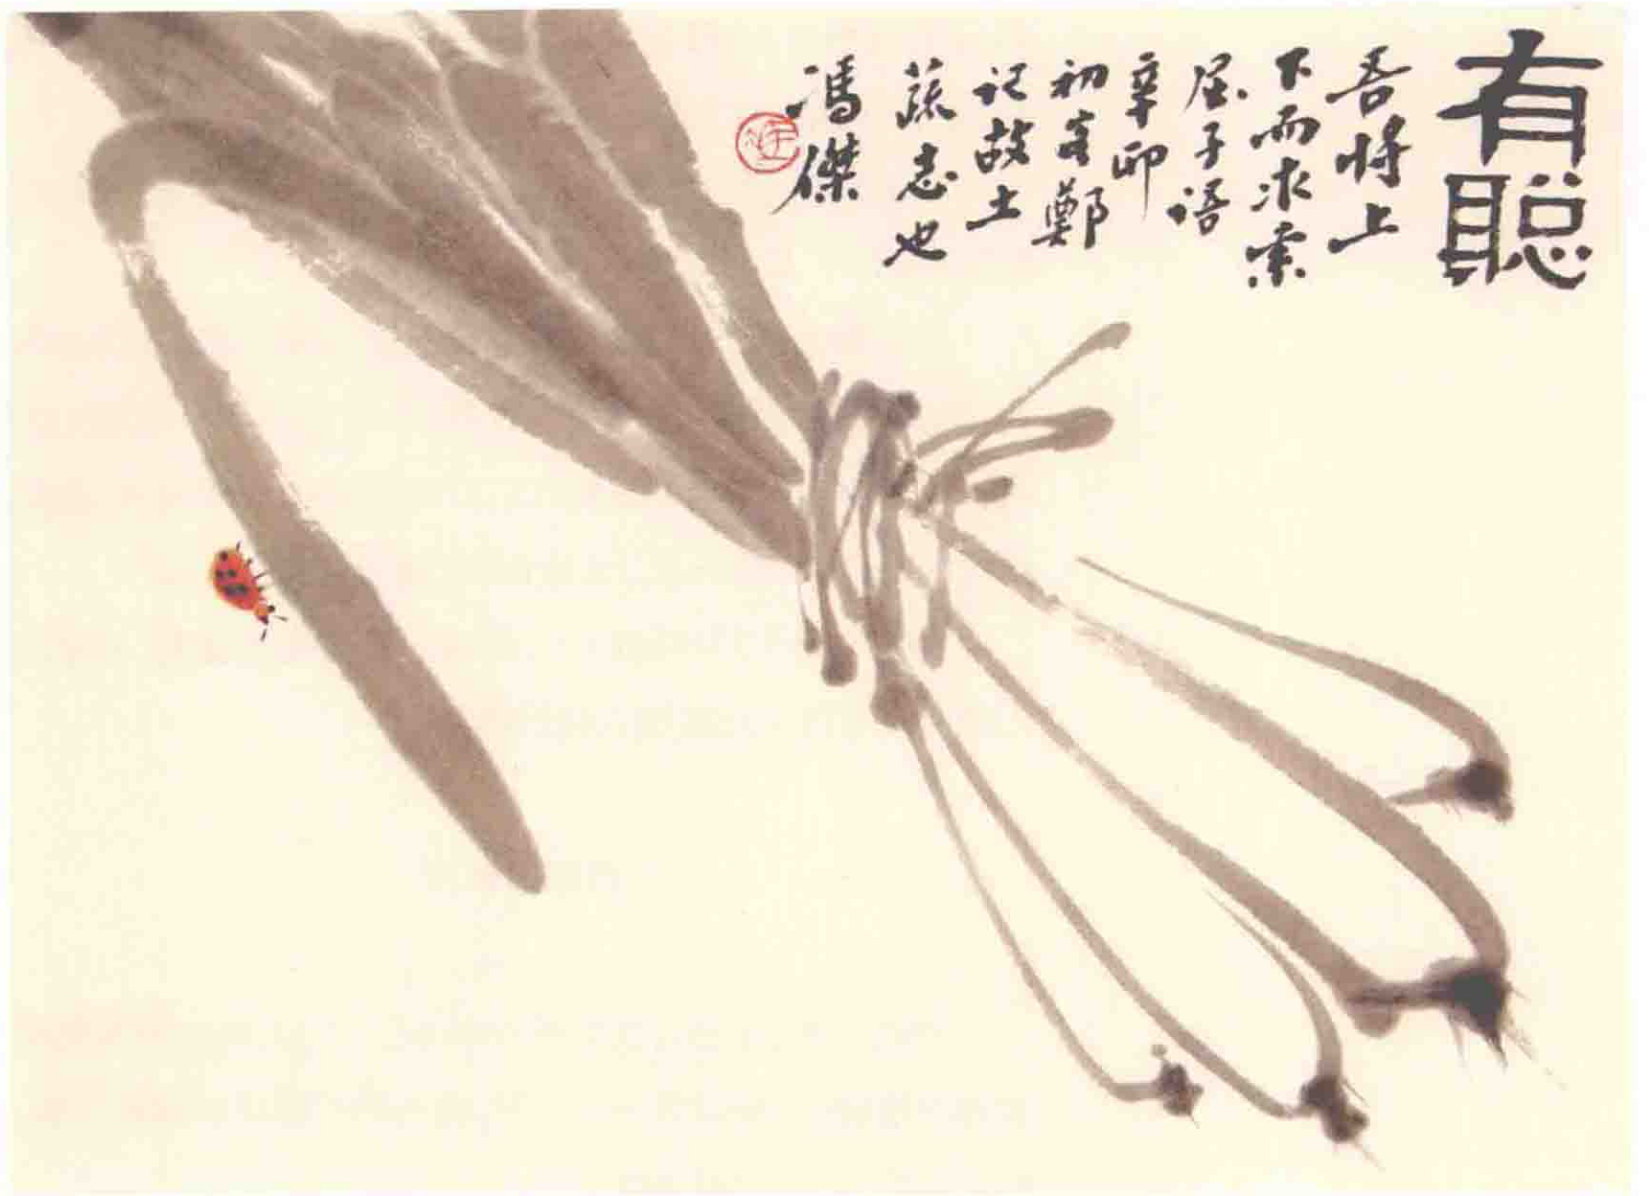 有聪
吾将上
下而求索
屈子语
辛卯
初客鄭
记故土
蔬志也
馮傑